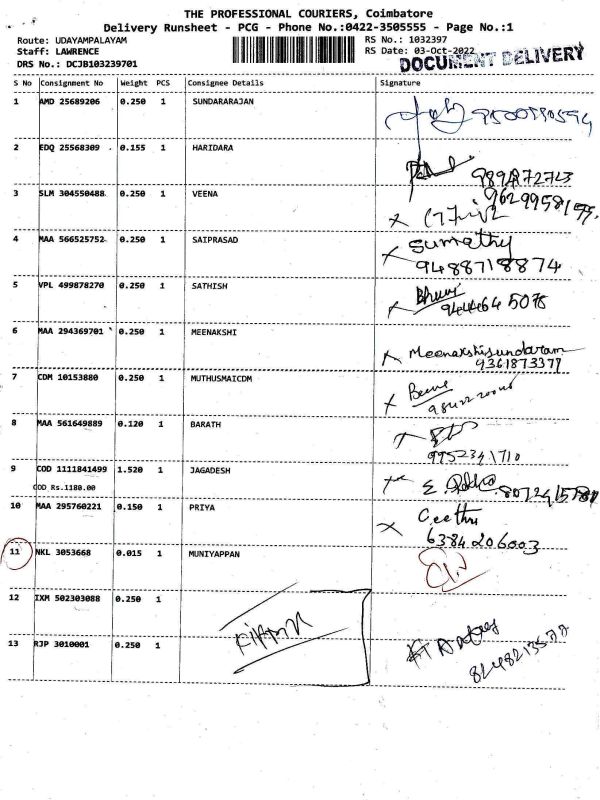 THE PROFESSIONAL COURIERS, Coimbatore
Delivery Runsheet - PCG - Phone No.:0422-3505555 - Page No.:1
Route: UDAYAMPALAYAM
Staff: LAWRENCE
DRS No.: DCJB103239701
RS No.: 1032397
RS Date: 03-Oct-2022
DOCUMENT DELIVERY
S No Consignment No Weight PCS Consignee Details Signature
1 AMD 25689206 0.250 1 SUNDARARAJAN
2 EDQ 25568309 0.155 1 HARIDARA
3 SLM 304550488 0.250 1 VEENA
4 MAA 566525752 0.250 1 SAIPRASAD Sumathy
9488718874
5 VPL 499878270 0.250 1 SATHISH
6 MAA 294369701 0.250 1 MEENAKSHI Meenakshisundaram
7 CDM 10153880 0.250 1 MUTHUSMAICDM
8 MAA 561649889 0.120 1 BARATH
9952341710
9 COD 1111841499 1.520 1 JAGADESH
COD Rs.1180.00
10 MAA 295760221 0.150 1 PRIYA Geethu
6384206003
11 NKL 3053668 0.015 1 MUNIYAPPAN
12 IXM 502303088 0.250 1
13 RJP 3010001 0.250 1